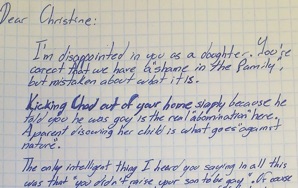 Dear Christine:
I'm disappointed in you as a daughter. You're
correct that we have a "shame in the family",
but mistaken about what it is.
Kicking Chad out of your home simply because he
told you he was gay is the real "abomination" here.
A parent disowning her child is what goes against
nature.
The only intelligent thing I heard you saying in all this
was that "you didn't raise your son to be gay". Of course